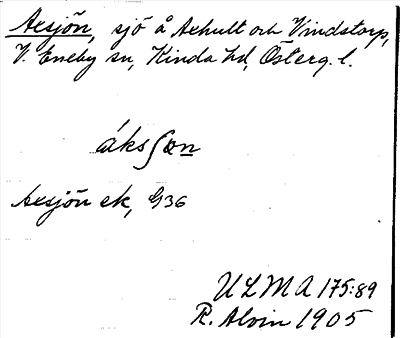 Axsjön, sjö å Axhult och Vindstorp,
V. Eneby sn, Kinda hd, Österg. l.
áksʃøn
Axsjön ek, G36
ULMA 175:89
R. Alvin 1905